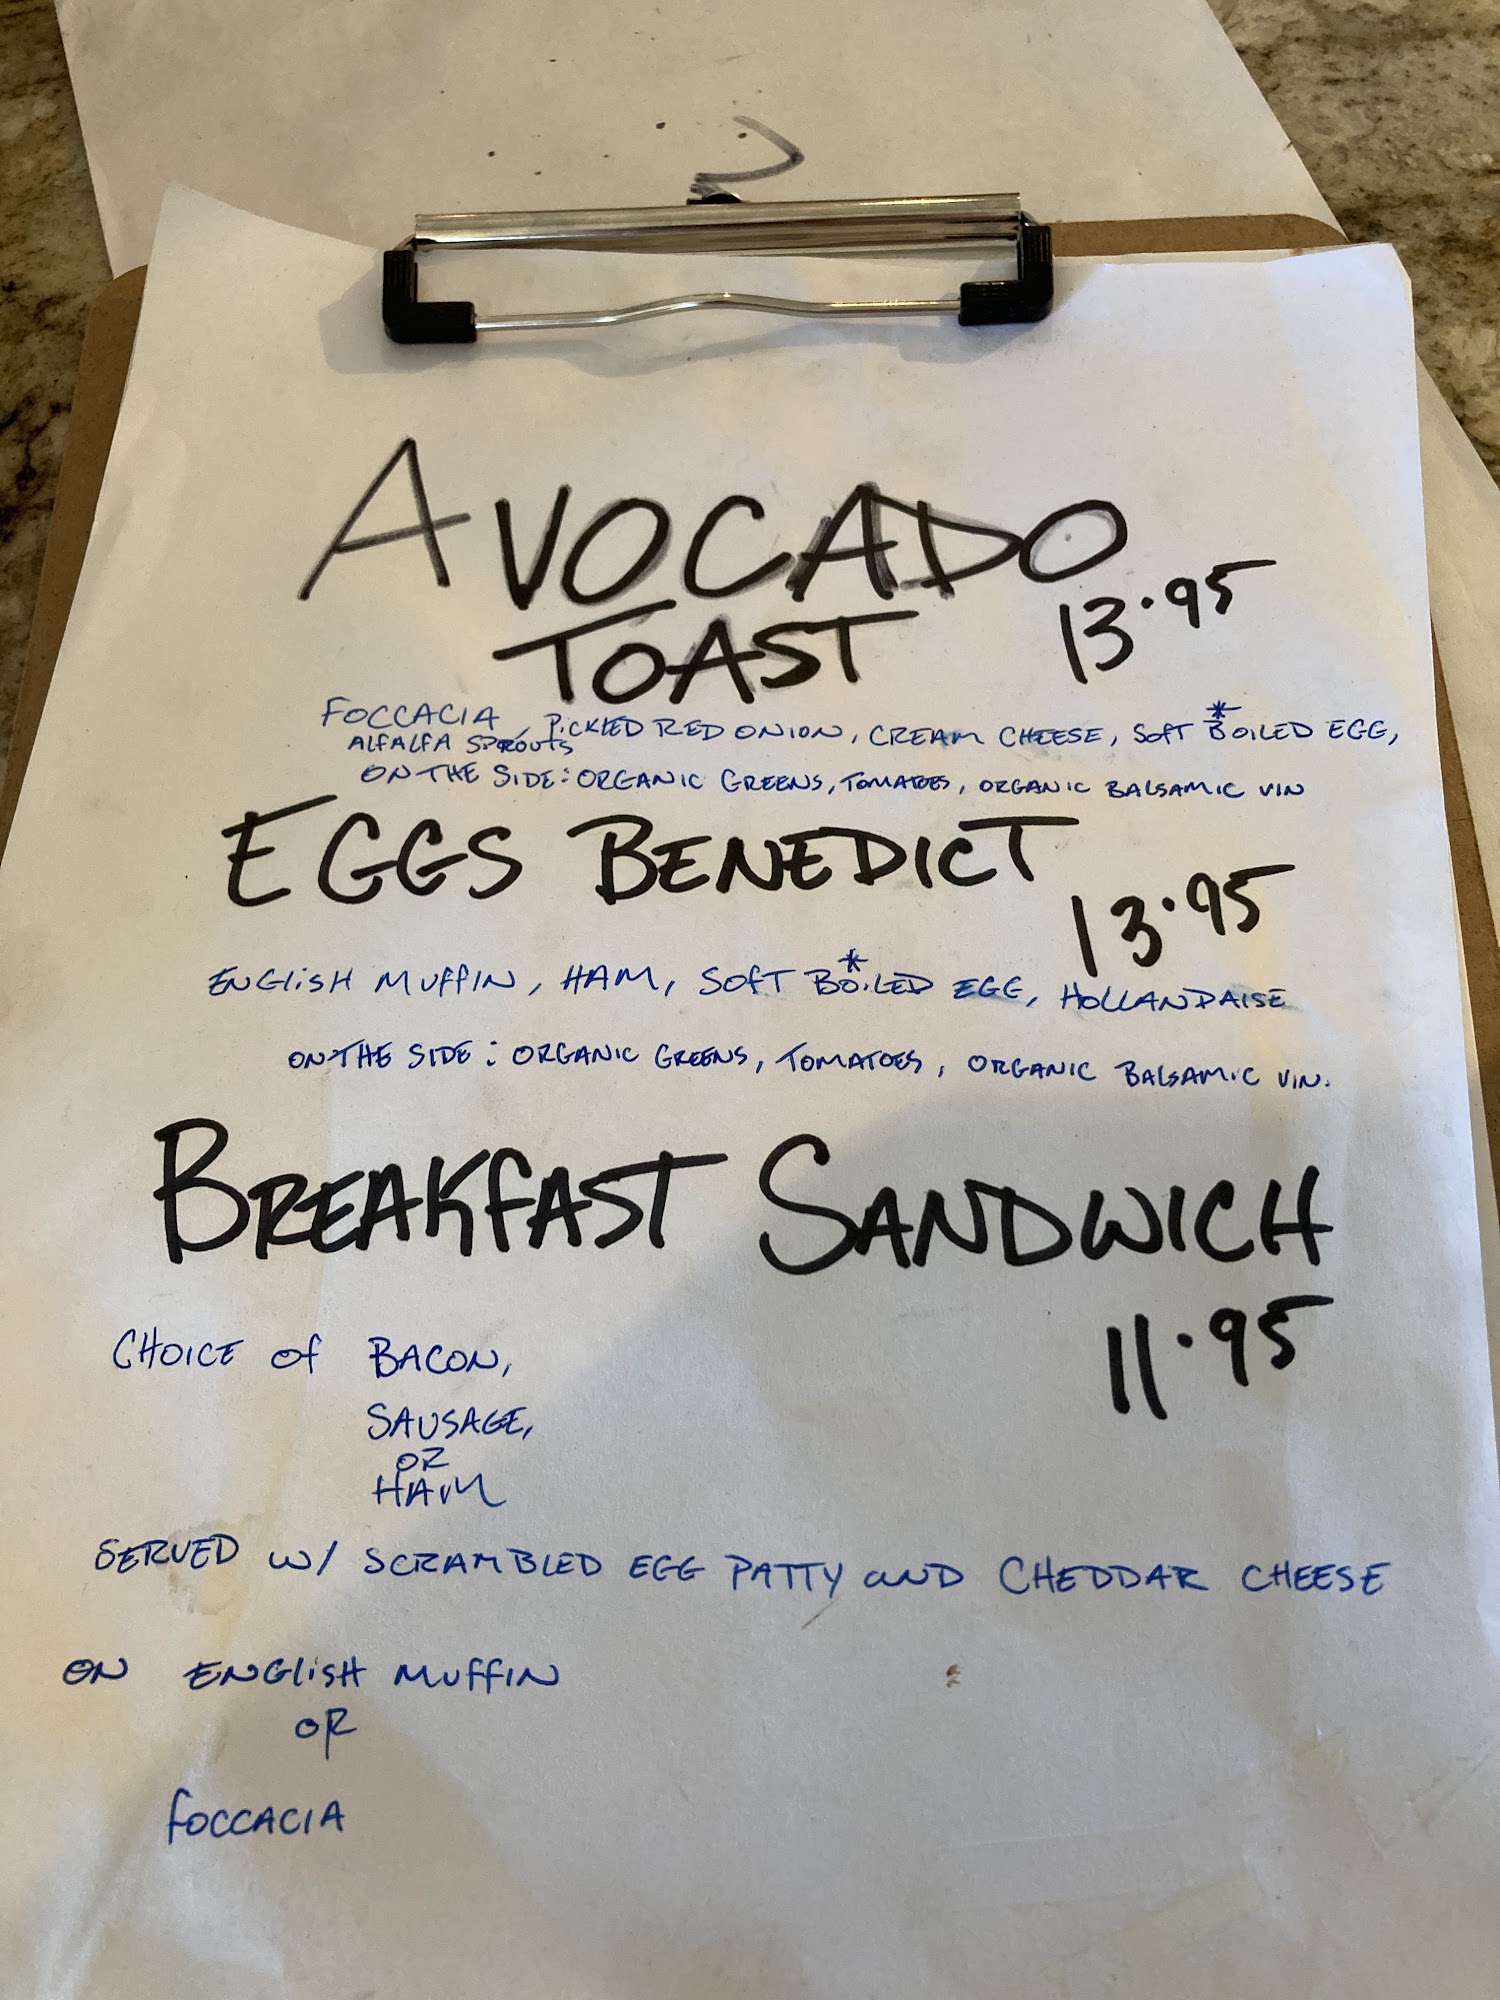 AVOCADO
TOAST 13.95
FOCCACIA, PICKLED RED ONION, CREAM CHEESE, SOFT BOILED* EGG,
ALFALFA SPROUTS
ON THE SIDE: ORGANIC GREENS, TOMATOES, ORGANIC BALSAMIC VIN
EGGS BENEDICT
13.95
ENGLISH MUFFIN, HAM, SOFT BOILED* EGG, HOLLANDAISE
ON THE SIDE: ORGANIC GREENS, TOMATOES, ORGANIC BALSAMIC VIN.
BREAKFAST SANDWICH
11.95
CHOICE of BACON,
SAUSAGE,
OR
HAM
SERVED W/ SCRAMBLED EGG PATTY AND CHEDDAR CHEESE
ON ENGLISH MUFFIN
OR
FOCCACIA